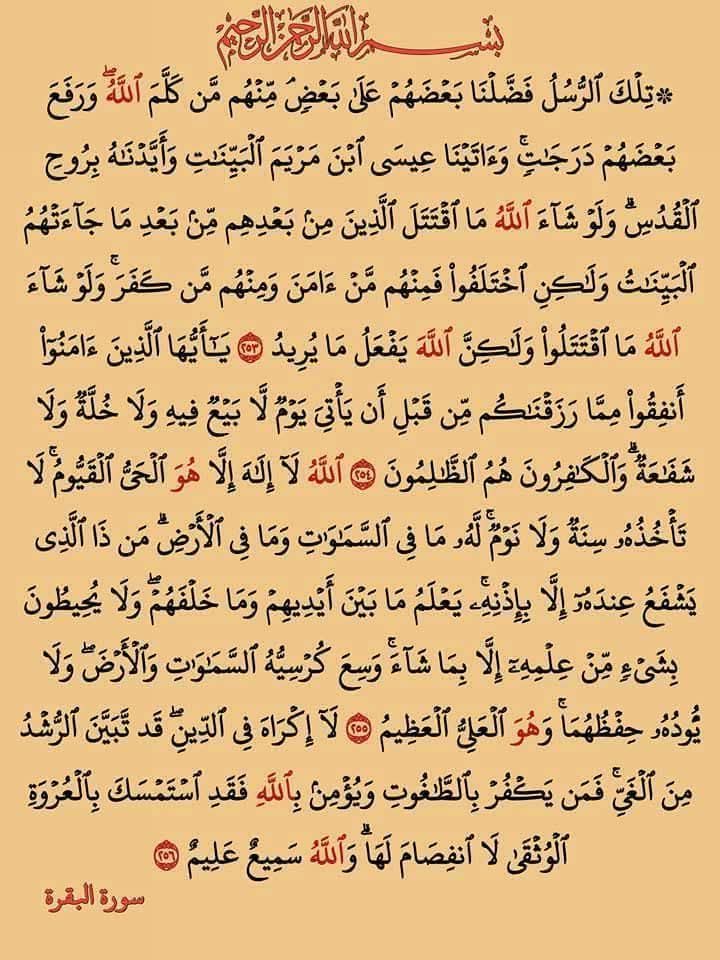 بِسْمِ اللَّهِ الرَّحْمَٰنِ الرَّحِيمِ
۞ تِلْكَ ٱلرُّسُلُ فَضَّلْنَا بَعْضَهُمْ عَلَىٰ بَعْضٍ مِّنْهُم مَّن كَلَّمَ ٱللَّهُ ۖ وَرَفَعَ
بَعْضَهُمْ دَرَجَاتٍ ۚ وَءَاتَيْنَا عِيسَى ٱبْنَ مَرْيَمَ ٱلْبَيِّنَاتِ وَأَيَّدْنَاهُ بِرُوحِ
ٱلْقُدُسِ ۗ وَلَوْ شَآءَ ٱللَّهُ مَا ٱقْتَتَلَ ٱلَّذِينَ مِنۢ بَعْدِهِم مِّنۢ بَعْدِ مَا جَآءَتْهُمُ
ٱلْبَيِّنَاتُ وَلَٰكِنِ ٱخْتَلَفُوا۟ فَمِنْهُم مَّنْ ءَامَنَ وَمِنْهُم مَّن كَفَرَ ۚ وَلَوْ شَآءَ
ٱللَّهُ مَا ٱقْتَتَلُوا۟ وَلَٰكِنَّ ٱللَّهَ يَفْعَلُ مَا يُرِيدُ ٢٥٣ يَٰٓأَيُّهَا ٱلَّذِينَ ءَامَنُوٓا۟
أَنفِقُوا۟ مِمَّا رَزَقْنَاكُم مِّن قَبْلِ أَن يَأْتِىَ يَوْمٌ لَّا بَيْعٌ فِيهِ وَلَا خُلَّةٌ وَلَا
شَفَاعَةٌ ۗ وَٱلْكَافِرُونَ هُمُ ٱلظَّالِمُونَ ٢٥٤ ٱللَّهُ لَآ إِلَٰهَ إِلَّا هُوَ ٱلْحَىُّ ٱلْقَيُّومُ ۚ لَا
تَأْخُذُهُۥ سِنَةٌ وَلَا نَوْمٌ ۚ لَّهُۥ مَا فِى ٱلسَّمَٰوَٰتِ وَمَا فِى ٱلْأَرْضِ ۗ مَن ذَا ٱلَّذِى
يَشْفَعُ عِندَهُۥٓ إِلَّا بِإِذْنِهِۦ ۚ يَعْلَمُ مَا بَيْنَ أَيْدِيهِمْ وَمَا خَلْفَهُمْ ۖ وَلَا يُحِيطُونَ
بِشَىْءٍ مِّنْ عِلْمِهِۦٓ إِلَّا بِمَا شَآءَ ۚ وَسِعَ كُرْسِيُّهُ ٱلسَّمَٰوَٰتِ وَٱلْأَرْضَ ۖ وَلَا
يَـُٔودُهُۥ حِفْظُهُمَا ۚ وَهُوَ ٱلْعَلِىُّ ٱلْعَظِيمُ ٢٥٥ لَآ إِكْرَاهَ فِى ٱلدِّينِ ۖ قَد تَّبَيَّنَ ٱلرُّشْدُ
مِنَ ٱلْغَىِّ ۚ فَمَن يَكْفُرْ بِٱلطَّاغُوتِ وَيُؤْمِنۢ بِٱللَّهِ فَقَدِ ٱسْتَمْسَكَ بِٱلْعُرْوَةِ
ٱلْوُثْقَىٰ لَا ٱنفِصَامَ لَهَا ۗ وَٱللَّهُ سَمِيعٌ عَلِيمٌ ٢٥٦
سورة البقرة